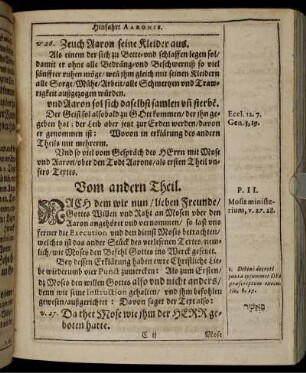 Hinfahrt AARONIS.
v. 26. Zeuch Aaron seine Kleider aus.
Als einem der sich zu Bette und schlaffen legen sol/
damit er ohne alle Bedräng- und Beschwernüß so viel
sänffter ruhen möge/ weñ jhm gleich mit seinen Kleidern
alle Sorge/ Mühe/ Arbeit/ alle Schmertzen und Traw-
rigkeit außgezogen würden.
und Aaron sol sich daselbst samlen uñ sterbē.
Der Geist sol alsobald zu GOtt kommen/ der jhn ge-
geben hat: der Leib aber jetzt zur Erden werden/ davon
er genommen ist: Wovon in erklärung des andern
Theils mit mehrerm.
Und so viel vom Gespräch des HErrn mit Mose
und Aaron/ uber den Todt Aarons/ als ersten Theil un-
sers Textes.
Eccl. 12. 7.
Gen. 3, 19.
Vom andern Theil.
NACH dem wir nun/ lieben Freunde/
Gottes Willen und Raht an Mosen uber den
Aaron angehöret und vernommen/ so last uns
ferner die Execution und den dienst Mosis betrachten/
welches ist das ander Stück des verlesenen Textes/ nem-
lich/ wie Moses den Befehl Gottes ins Werck gesetzet.
Bey dessen Erklärung haben ewre Christliche Lie-
be wiederumb vier Punct zumercken: Als zum Ersten/
dz Moses den willen Gottes also und nicht anders/
denn wie seine Instruction gehalten/ und jhm befohlen
gewesen/ außgerichtet: Davon saget der Text also:
v. 27. Da thet Mose wie jhm der HERR ge-
boten hatte.
P. II.
Mosis ministe-
rium, v. 27. 28.
1. Divini decreti
juxta
præscriptum execu-
tio, v. 27.
כאשר
C ij
Mose